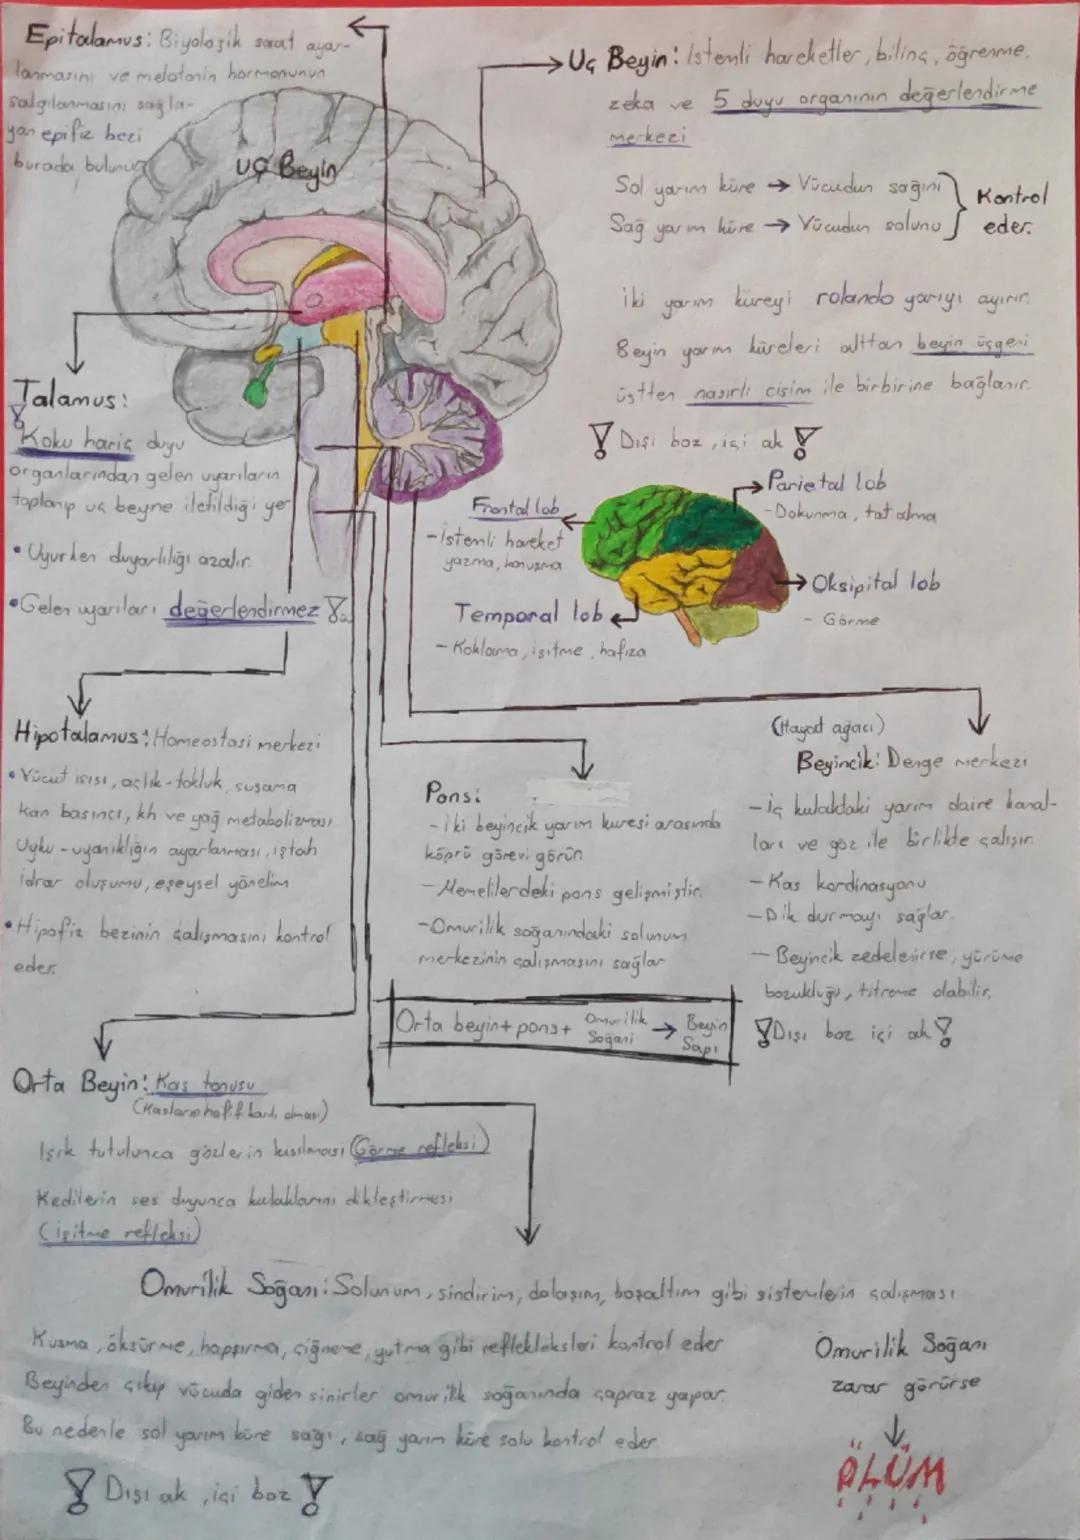 Epitalamus: Biyolojik saat ayar-
lanmasını ve melatonin hormonunun
salgılanmasını sağla-
yan epifiz bezi
burada bulunur
Uç Beyin
Uç Beyin: İstemli hareketler, bilinç, öğrenme,
zeka ve 5 duyu organının değerlendirme
merkezi
Sol yarım küre → Vücudun sağını
Sağ yarım küre → Vücudun solunu
Kontrol
eder.
İki yarım küreyi rolando yarığı ayırır.
Beyin yarım küreleri alttan beyin üçgeni
üstten nasırlı cisim ile birbirine bağlanır.
Dışı boz, içi ak
Talamus:
Koku hariç duyu
organlarından gelen uyarıların
toplanıp uç beyne iletildiği yer
• Uyurken duyarlılığı azalır.
• Gelen uyarıları değerlendirmez
Frontal lob
- İstemli hareket
yazma, konuşma
Parietal lob
- Dokunma, tat alma
Oksipital lob
- Görme
Temporal lob
- Koklama, işitme, hafıza
Hipotalamus: Homeostasi merkezi
• Vücut ısısı, açlık-tokluk, susama
kan basıncı, kh ve yağ metabolizması
Uyku-uyanıklığın ayarlanması, iştah
idrar oluşumu, eşeysel yönelim
• Hipofiz bezinin çalışmasını kontrol
eder.
Pons:
- İki beyincik yarım küresi arasında
köprü görevi görür.
- Memelilerdeki pons gelişmiştir.
- Omurilik soğanındaki solunum
merkezinin çalışmasını sağlar
(Hayat ağacı)
Beyincik: Denge merkezi
- İç kulaktaki yarım daire kanal-
ları ve göz ile birlikte çalışır.
- Kas kordinasyonu
- Dik durmayı sağlar.
- Beyincik zedelenirse, yürüme
bozukluğu, titreme olabilir.
Dışı boz içi ak
Orta beyin + pons + Omurilik Soğanı → Beyin Sapı
Orta Beyin: Kas tonusu
(Kasların hafif kasılı olması)
Işık tutulunca gözlerin kısılması (Görme refleksi)
Kedilerin ses duyunca kulaklarını dikleştirmesi
(işitme refleksi)
Omurilik Soğanı: Solunum, sindirim, dolaşım, boşaltım gibi sistemlerin çalışması
Kusma, öksürme, hapşırma, çiğneme, yutma gibi reflekleksleri kontrol eder
Beyinden çıkıp vücuda giden sinirler omurilik soğanında çapraz yapar.
Bu nedenle sol yarım küre sağı, sağ yarım küre solu kontrol eder
Dışı ak, içi boz
Omurilik Soğanı
zarar görürse
ÖLÜM